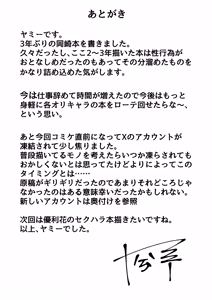 あとがき
ヤミーです。
3年ぶりの岡崎本を書きました。
久々だったし、ここ2〜3年描いた本は性行為が
おとなしめだったのもあってその分溜めたものを
かなり詰め込めた気がします。
今は仕事辞めて時間が増えたので今後はもっと
身軽に各オリキャラの本をローテ回せたらな〜、
という思い。
あと今回コミケ直前になってXのアカウントが
凍結されて少し焦りました。
普段描いてるモノを考えたらいつか凍らされても
おかしくないとは思ってたけどよりによってこの
タイミングとは……
原稿がギリギリだったのであまりそれどころじゃ
なかったのはある意味幸いだったかもしれない。
新しいアカウントは奥付けを参照
次回は優利花のセクハラ本描きたいですね。
以上、ヤミーでした。